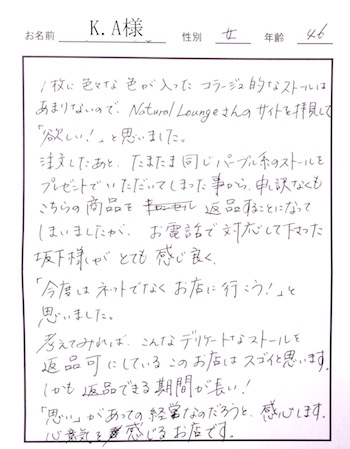 お名前 K.A様 性別 女 年齢 46
1枚に色々な色が入ったコラージュ的なストールは
あまりないので、Natural Loungeさんのサイトを拝見して
「欲しい!」と思いました。
注文したあと、たまたま同じパープル系のストールを
プレゼントでいただいてしまった事から、申訳なくも
こちらの商品を 返品することになって
しまいましたが、お電話で対応して下さった
坂下様 がとても感じ良く、
「今度はネットでなくお店に行こう!」と
思いました。
考えてみれば、こんなデリケートなストールを
返品可にしているこのお店はスゴイと思います。
しかも返品できる期間が長い!
「思い」があっての経営なのだろうと、感心します。
心意気を感じるお店です。